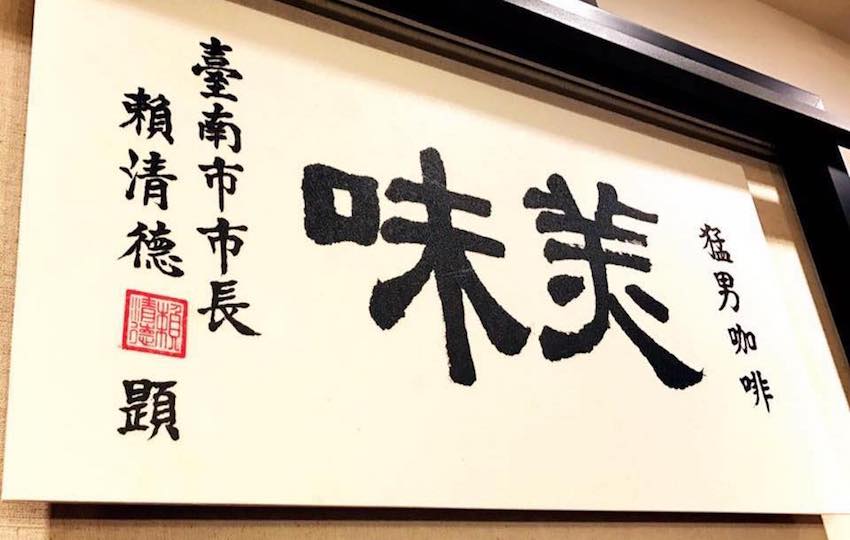 猛男咖啡
美味
臺南市市長
賴清德
賴清德
題